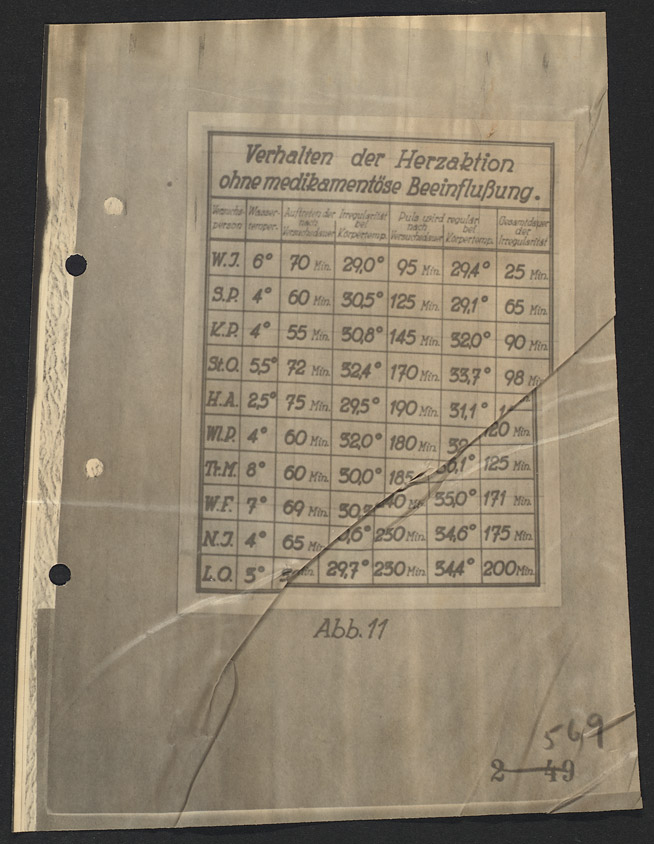 Verhalten der Herzaktion
ohne medikamentöse Beeinflußung.
Versuchsperson Wassertemper. Auftreten der Irregularität nach Versuchsdauer bei Körpertemp. Puls wird regulär nach Versuchsdauer bei Körpertemp. Gesamtdauer der Irregularität
W.J. 6° 70 Min. 29,0° 95 Min. 29,4° 25 Min.
S.P. 4° 60 Min. 30,5° 125 Min. 29,1° 65 Min.
K.P. 4° 55 Min. 30,8° 145 Min. 32,0° 90 Min.
St.O. 5,5° 72 Min. 32,4° 170 Min. 33,7° 98 Min.
H.A. 2,5° 75 Min. 29,5° 190 Min. 31,1°
Wl.P. 4° 60 Min. 32,0° 180 Min. 120 Min.
Tr.M. 8° 60 Min. 30,0° 185 125 Min.
W.F. 7° 69 Min. 35,0° 171 Min.
N.J. 4° 65 Min. 250 Min. 34,6° 175 Min.
L.O. 3° 29,7° 250 Min. 34,4° 200 Min.
Abb. 11
569
2 49